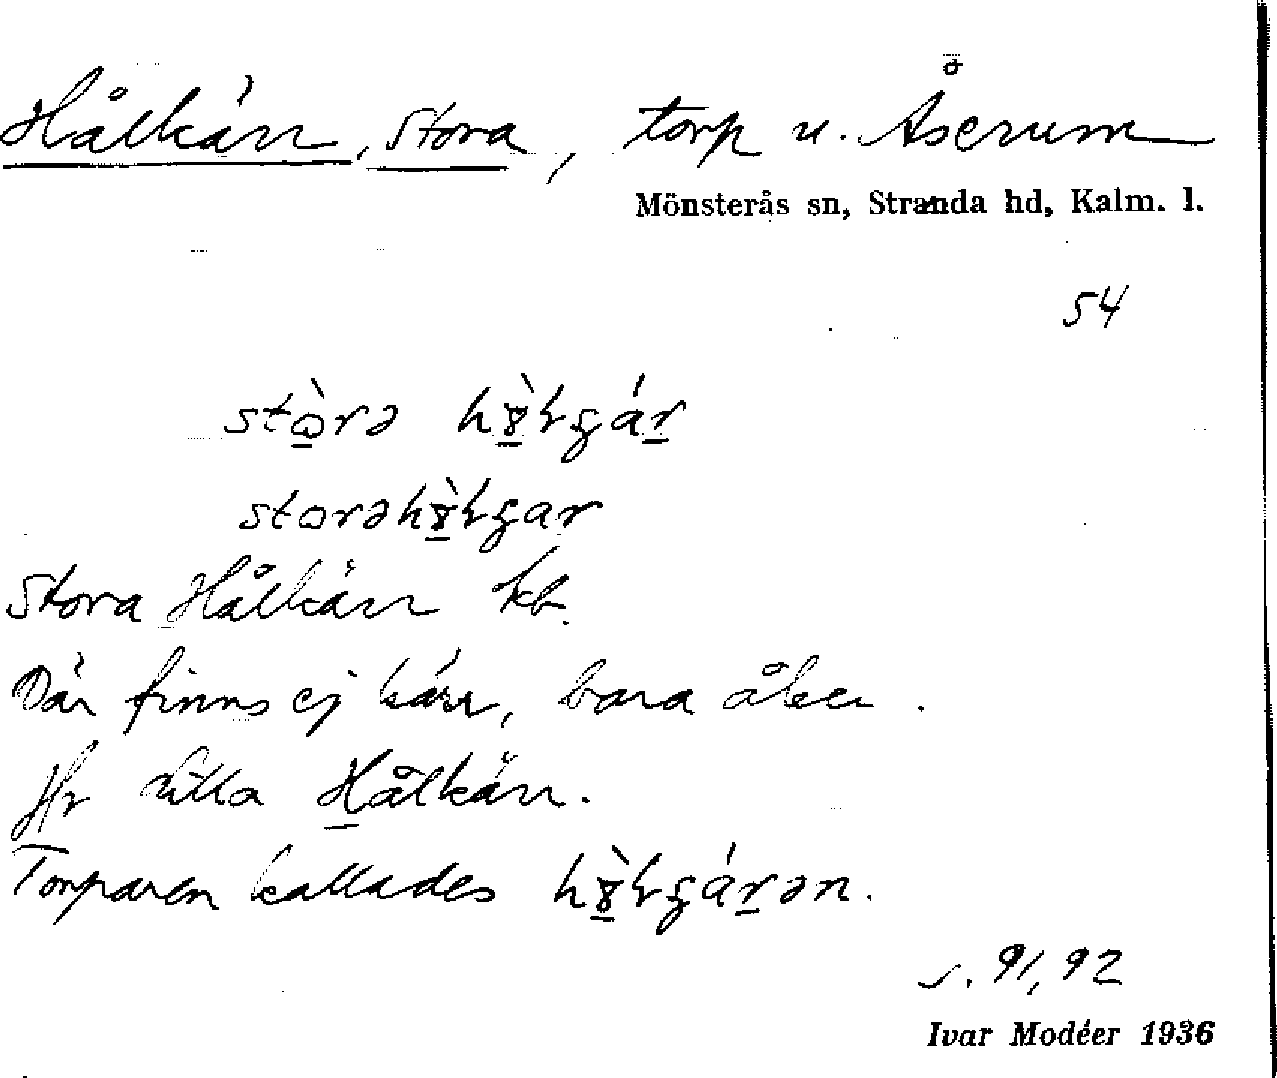 Hålkärr, Stora, torp u. Åserum
Mönsterås sn, Stranda hd, Kalm. l.
54
Stora Hålkärr kb.
Där finns ej kärr, bara åker.
Jfr Lilla Hålkärr.
Torparen kallades
s. 91, 92
Ivar Modéer 1936